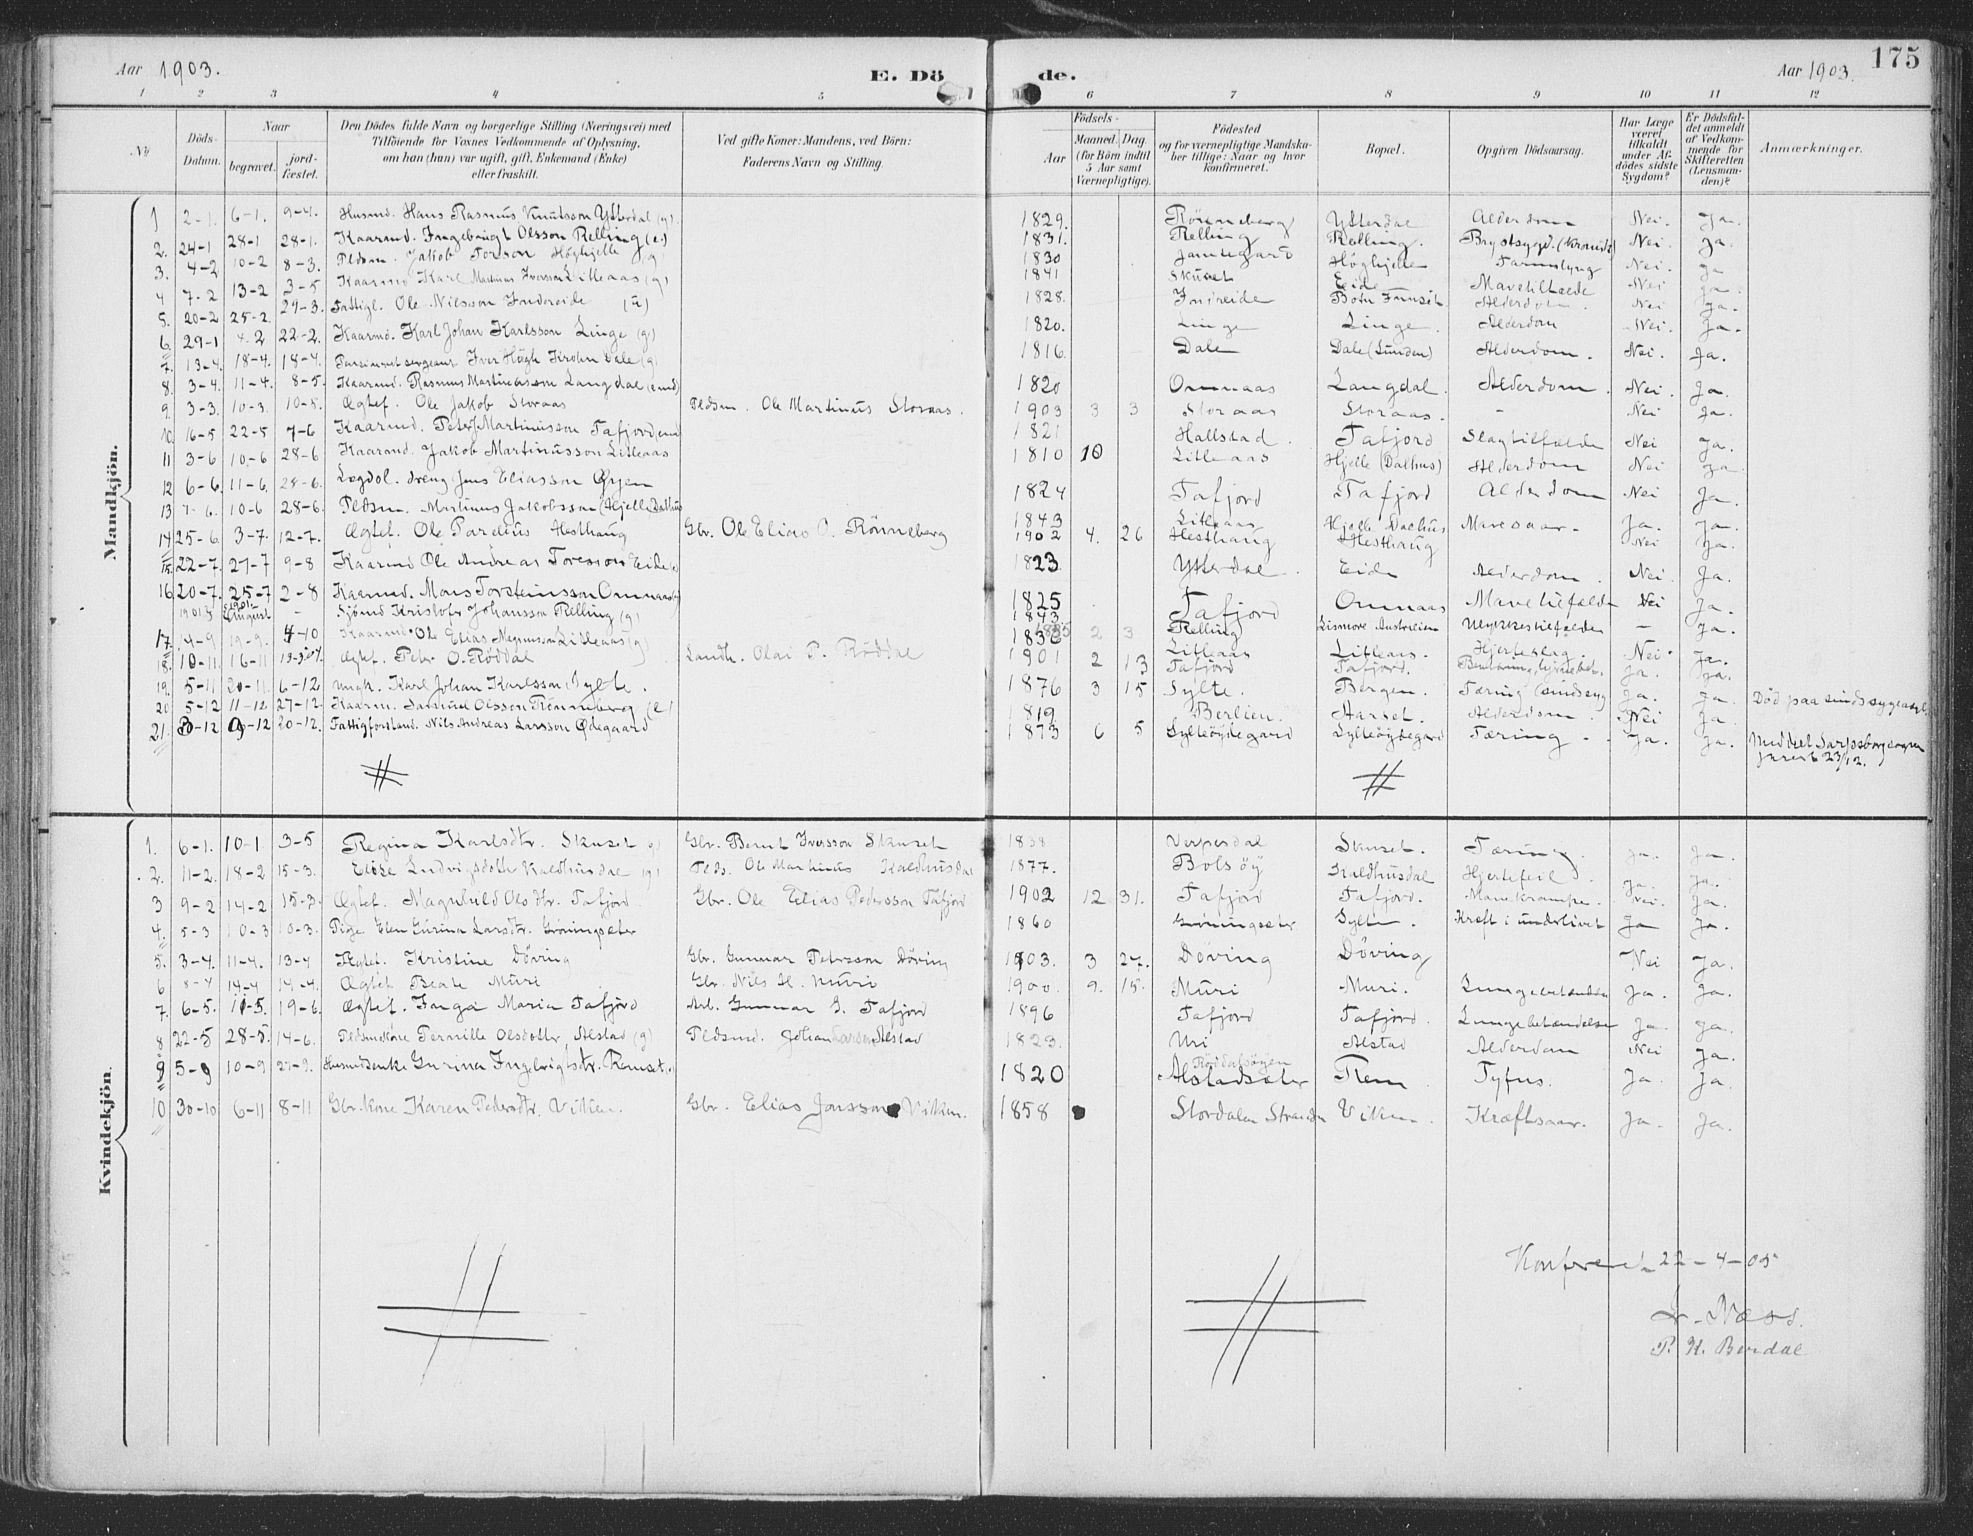 Aar 1903. E. Dö de. Aar 1903. 175
1 2 3 4 5 6 7 8 9 10 11 12
No
Döds-Datum.
Naar
begravet.
jord-fæstet.
Den Dödes fulde Navn og borgerlige Stilling (Næringsvei) med
Tilföiende for Voxnes Vedkommende af Oplysning,
om han (hun) var ugift, gift, Enkemand (Enke)
eller fraskilt.
Ved gifte Koner: Mandens, ved Börn:
Faderens Navn og Stilling.
Födsels-
Aar
Maaned. Dag.
(for Börn indtil
5 Aar samt
Værnepligtige).
Födested
og for værnepligtige Mandska-
ber tillige: Naar og hvor
konfirmeret.
Bopæl.
Opgiven Dödsaarsag.
Har Læge
været
tilkaldt
under Af-
dödes sidste
Sygdom?
Er Dödsfal-
det anmeldt
af Vedkom-
mende for
Skifteretten
(Lensman-
den)?
Anmærkninger.
Mandkjön.
1 2-1. 6-1. 9-4. Husmd. Hans Rasmus Knutson Ytterdal (g). 1829. Rönneberg Ytterdal Alderdom Nei. Ja.
2. 24-1 28-1 28-1. Kaarmd. Ingebrigt Olsson Relling (e.) 1831. Relling Relling. Brystsygd. (Kronisk) Nei. Ja.
3. 4-2 10-2 8-3. Pldsm. Jakob Torson Höghjelle (g) 1830 Jamtegard Höghjelle Tarmslyng Nei. Ja
4 7-2 13-2 3-5 Kaarmd Karl Martinus Iversson Litleaas (g) 1841 Skuset Eide Mavetilfælde Nei. Ja.
5. 20-2 25-2. 29-3. Fattigl. Ole Nilsson Indreeide (u) 1828. Indreeide Alderdom. Nei Ja.
6. 29-1 4-2 22-2. Kaarmd. Karl Johan Karlsson Linge (g) 1820. Linge Linge. Alderdom Nei. Ja.
7. 13-4 18-4. 18-4. Iver Högh Krohn Dale (g) 1816. Dale Dale (Lunden) Alderdom. Nei. Ja.
8. 3-4. 11-4. 8-5. Kaarmd. Rasmus Martinusson Langdal (emd) 1820 Omnaas Langdal. Alderdom. Nei. Ja.
9. 3-3. 10-3. 10-5. Ægtef. Ole Jakob Storaas Pldsm. Ole Martinus Storaas. 1903 3 3 Storaas Storaas. - Nei Ja.
10. 16-5 22-5 7-6 Kaarmd. Peter Martinusson Tafjord (emd 1821 Hallstad. Tafjord Slagtilfælde Nei Ja.
11 3-6 10-6 28-6 Kaarmd. Jakob Martinusson Litleaas 1810 10 Litleaas Hjelle (Dalhus) Alderdom Nei Ja
12 6-6. 11-6. 28-6. Legdol. dreng Jens Eliasson Öyen 1824 Tafjord Tafjord Alderdom Nei Ja.
13 7-6. 10-6 28-6. Pldsm. Martinus Jakobsson (Hjelle Dalhus 1843 Litleaas Hjelle Dalhus Mavesaar- Ja. Ja.
14 25-6. 3-7. 12-7. Ægtef. Ole Pardeius Hesthaug Gbr. Ole Elias O. Rönneberg 1902 4. 26 Hesthaug Hesthaug Nei Ja.
15. 22-7. 27-7 9-8 Kaarmd Ole Andreas Toresson Eide (e) 1823. Ytterdal. Eide Alderdom. Nei. Ja.
16 20-7. 25-7 2-8 Kaarmd. Mons Torsteinsson Omnaas 1825 Tafjord Omnaas Mavetilfælde Nei Ja.
1901 August - Sjömd Kristofr Johansson Relling (g) 1843 Relling Lismore Australien Ulykkestilfælde - Ja.
17. 4-9 19-9. 4-10 Kaarmd. Ole Elias Magnusson Litleaas (g) Litleaas Litleaas. Hjerteslag. Nei. Ja.
18. 10-11. 16-11 Ægtef. Peter O. Röddal Landh. Olai P. Röddal 1901 2 13 Tafjord Tafjord. Ja. Ja.
19. 5-11 20-11. 6-12 Ungk. Karl Johan Karlsson Sylte. 1876 3 15 Sylte. Bergen. Tæring (sindssyg Ja. Ja. Död paa sindssygeasyl
20 5-12 11-12 27-12. Kaarm. Samuel Olsson Rönneberg (e) 1819 Berlien. Aarset. Alderdom. Nei Ja.
21. 3-12 9-12 20-12. Fattigforstand. Nils Andreas Larsson Ödegaard 1873 6 5 Sylteöydegard Sylteöydegard Tæring - Ja. Ja. Meddelt Sarpsborg sogne
23/12.
Kvindekjön.
1. 6-1. 10-1. 3-5 Regina Karlsdtr. Skuset g) Gbr. Bernt Iversson Skuset 1838 Verpesdal Skuset. Tæring. Ja. Ja.
2. 11-2. 18-2 15-3. Elise Ludvigsdotter Kaldhusdal (g) Plds. Ole Martinus Kaldhusdal 1877. Bolsöy Kaldhusdal Hjertefeil. Ja. Ja.
3 9-2 14-2 15-3. Ægtef. Magnhild Olsdtr. Tafjord. Gbr. Ole Elias Pedersson Tafjord 1902 12 31. Tafjord Tafjord. Mavekrampe. Nei. Ja.
4. 5-3 10-3 10-3. Pige Elen Gurina Larsdtr. Gröningsæter 1860 Gröningsæter Sylte. Kræft i underlivet Ja Ja.
5. 3-4. 11-4. 13-4 Ægtef. Kristine Döving Gbr. Gunnar Petersson Döving 1903. 3 27. Döving Döving Nei Ja.
6 8-4 14-4 14-4. Ægtef Beate Muri Gbr. Nils H. Muri 1900. 9. 15. Muri Muri. Lungebetændelse Ja. Ja.
7. 6-5. 11-5. 19-6. Ægtef. Inga Maria Tafjord Arb. Gunnar I. Tafjord 1896 Tafjord Tafjord. Lungebetændelse Ja. Ja.
8 22-5 28-5. 14-6. Pldsmdkone Pernille Olsdotter Alstad (g) Pldsmd. Johan Larsson Alstad 1823. Uri Alstad Alderdom Nei Ja.
9 5-9 10-9 27-9. Husmdsenke Gurina Ingebrigtsdtr. Remset (e) 1820 Röddalsöyen Alstadsæter Rem Tyfus. Ja. Ja.
10 30-10 6-11 8-11 Gbr.kone Karen Pedersdtr. Viken. Gbr. Elias Jonsson Viken. 1858 Stordalen Stranden Viken. Kræftsaar. Ja. Ja.
Konfereret 22-4-05
L. Næss.
P. H. Berdal